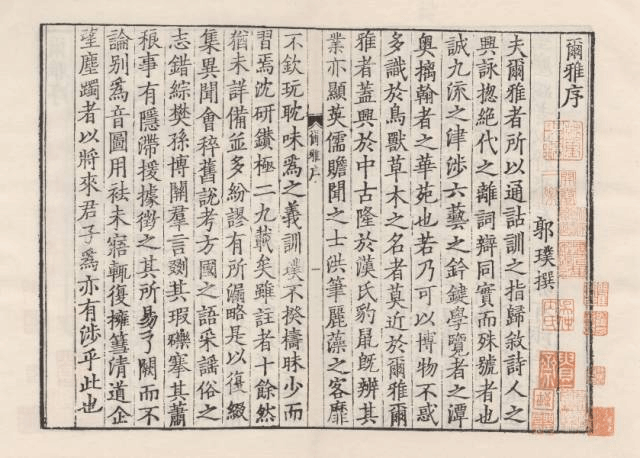 爾雅序
郭璞撰
夫爾雅者所以通詁訓之指歸敘詩人之
興詠揔絕代之離詞辯同實而殊號者也
誠九流之津涉六藝之鈐鍵學覽者之潭
奥摛翰者之華苑也若乃可以博物不惑
多識於鳥獸草木之名者莫近於爾雅爾
雅者蓋興於中古隆於漢氏豹鼠旣辨其
業亦顯英儒贍聞之士洪筆麗藻之客靡
爾雅序
一
不欽玩耽味爲之義訓璞不揆檮昧少而
習焉沈研鑽極二九載矣雖註者十餘然
猶未詳備並多紛謬有所漏略是以復綴
集異聞會稡舊說考方國之語采謠俗之
志錯綜樊孫博關羣言剟其瑕礫搴其蕭
稂事有隱滯援據徵之其所易了闕而不
論別爲音圖用祛未寤輒復擁篲清道企
望塵躅者以將來君子爲亦有涉乎此也